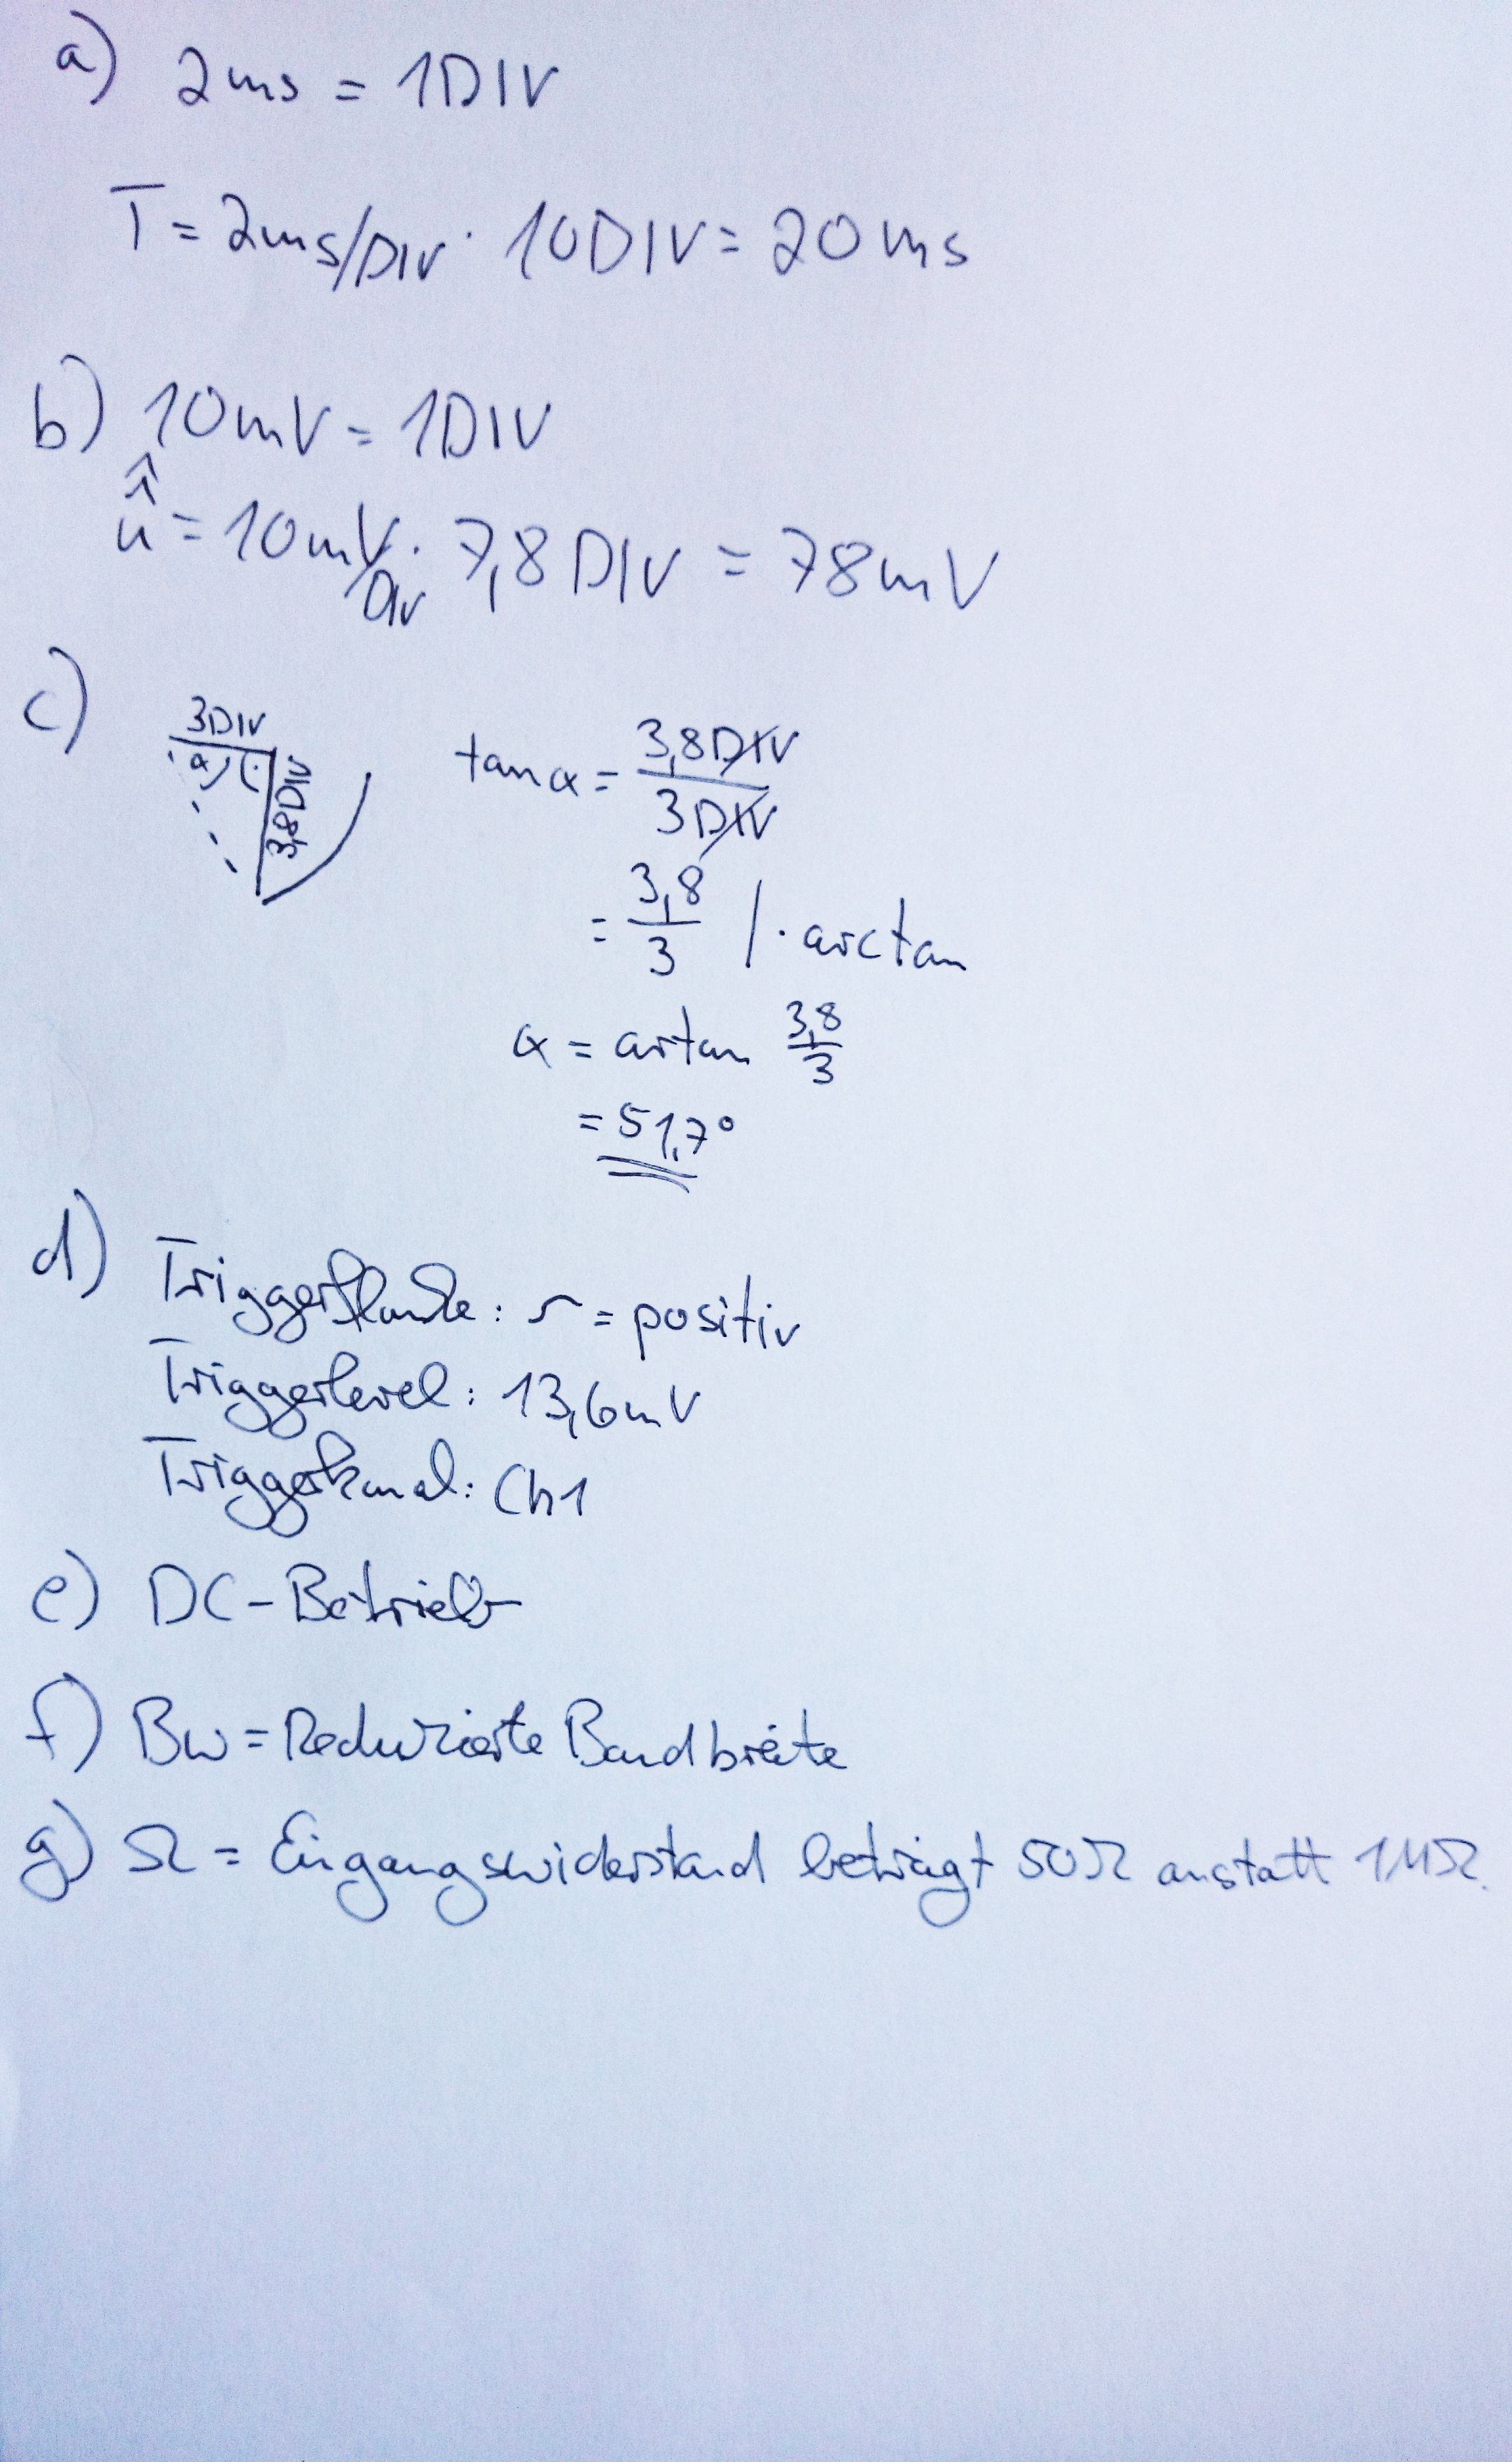 a) 2ms = 1DIV
T = 2ms/DIV · 10DIV = 20ms
b) 10mV = 1DIV
û̂ = 10mV/DIV · 7,8DIV = 78mV
c)
3DIV
α
3,8DIV
tan α = 3,8DIV / 3DIV
= 3,8 / 3 | · arctan
α = artan 3,8 / 3
= 51,7°
d) Triggerflanke: = positiv
Triggerlevel: 13,6mV
Triggerkanal: Ch1
e) DC-Betrieb
f) Bw = Reduzierte Bandbreite
g) Ω = Eingangswiderstand beträgt 50Ω anstatt 1MΩ.